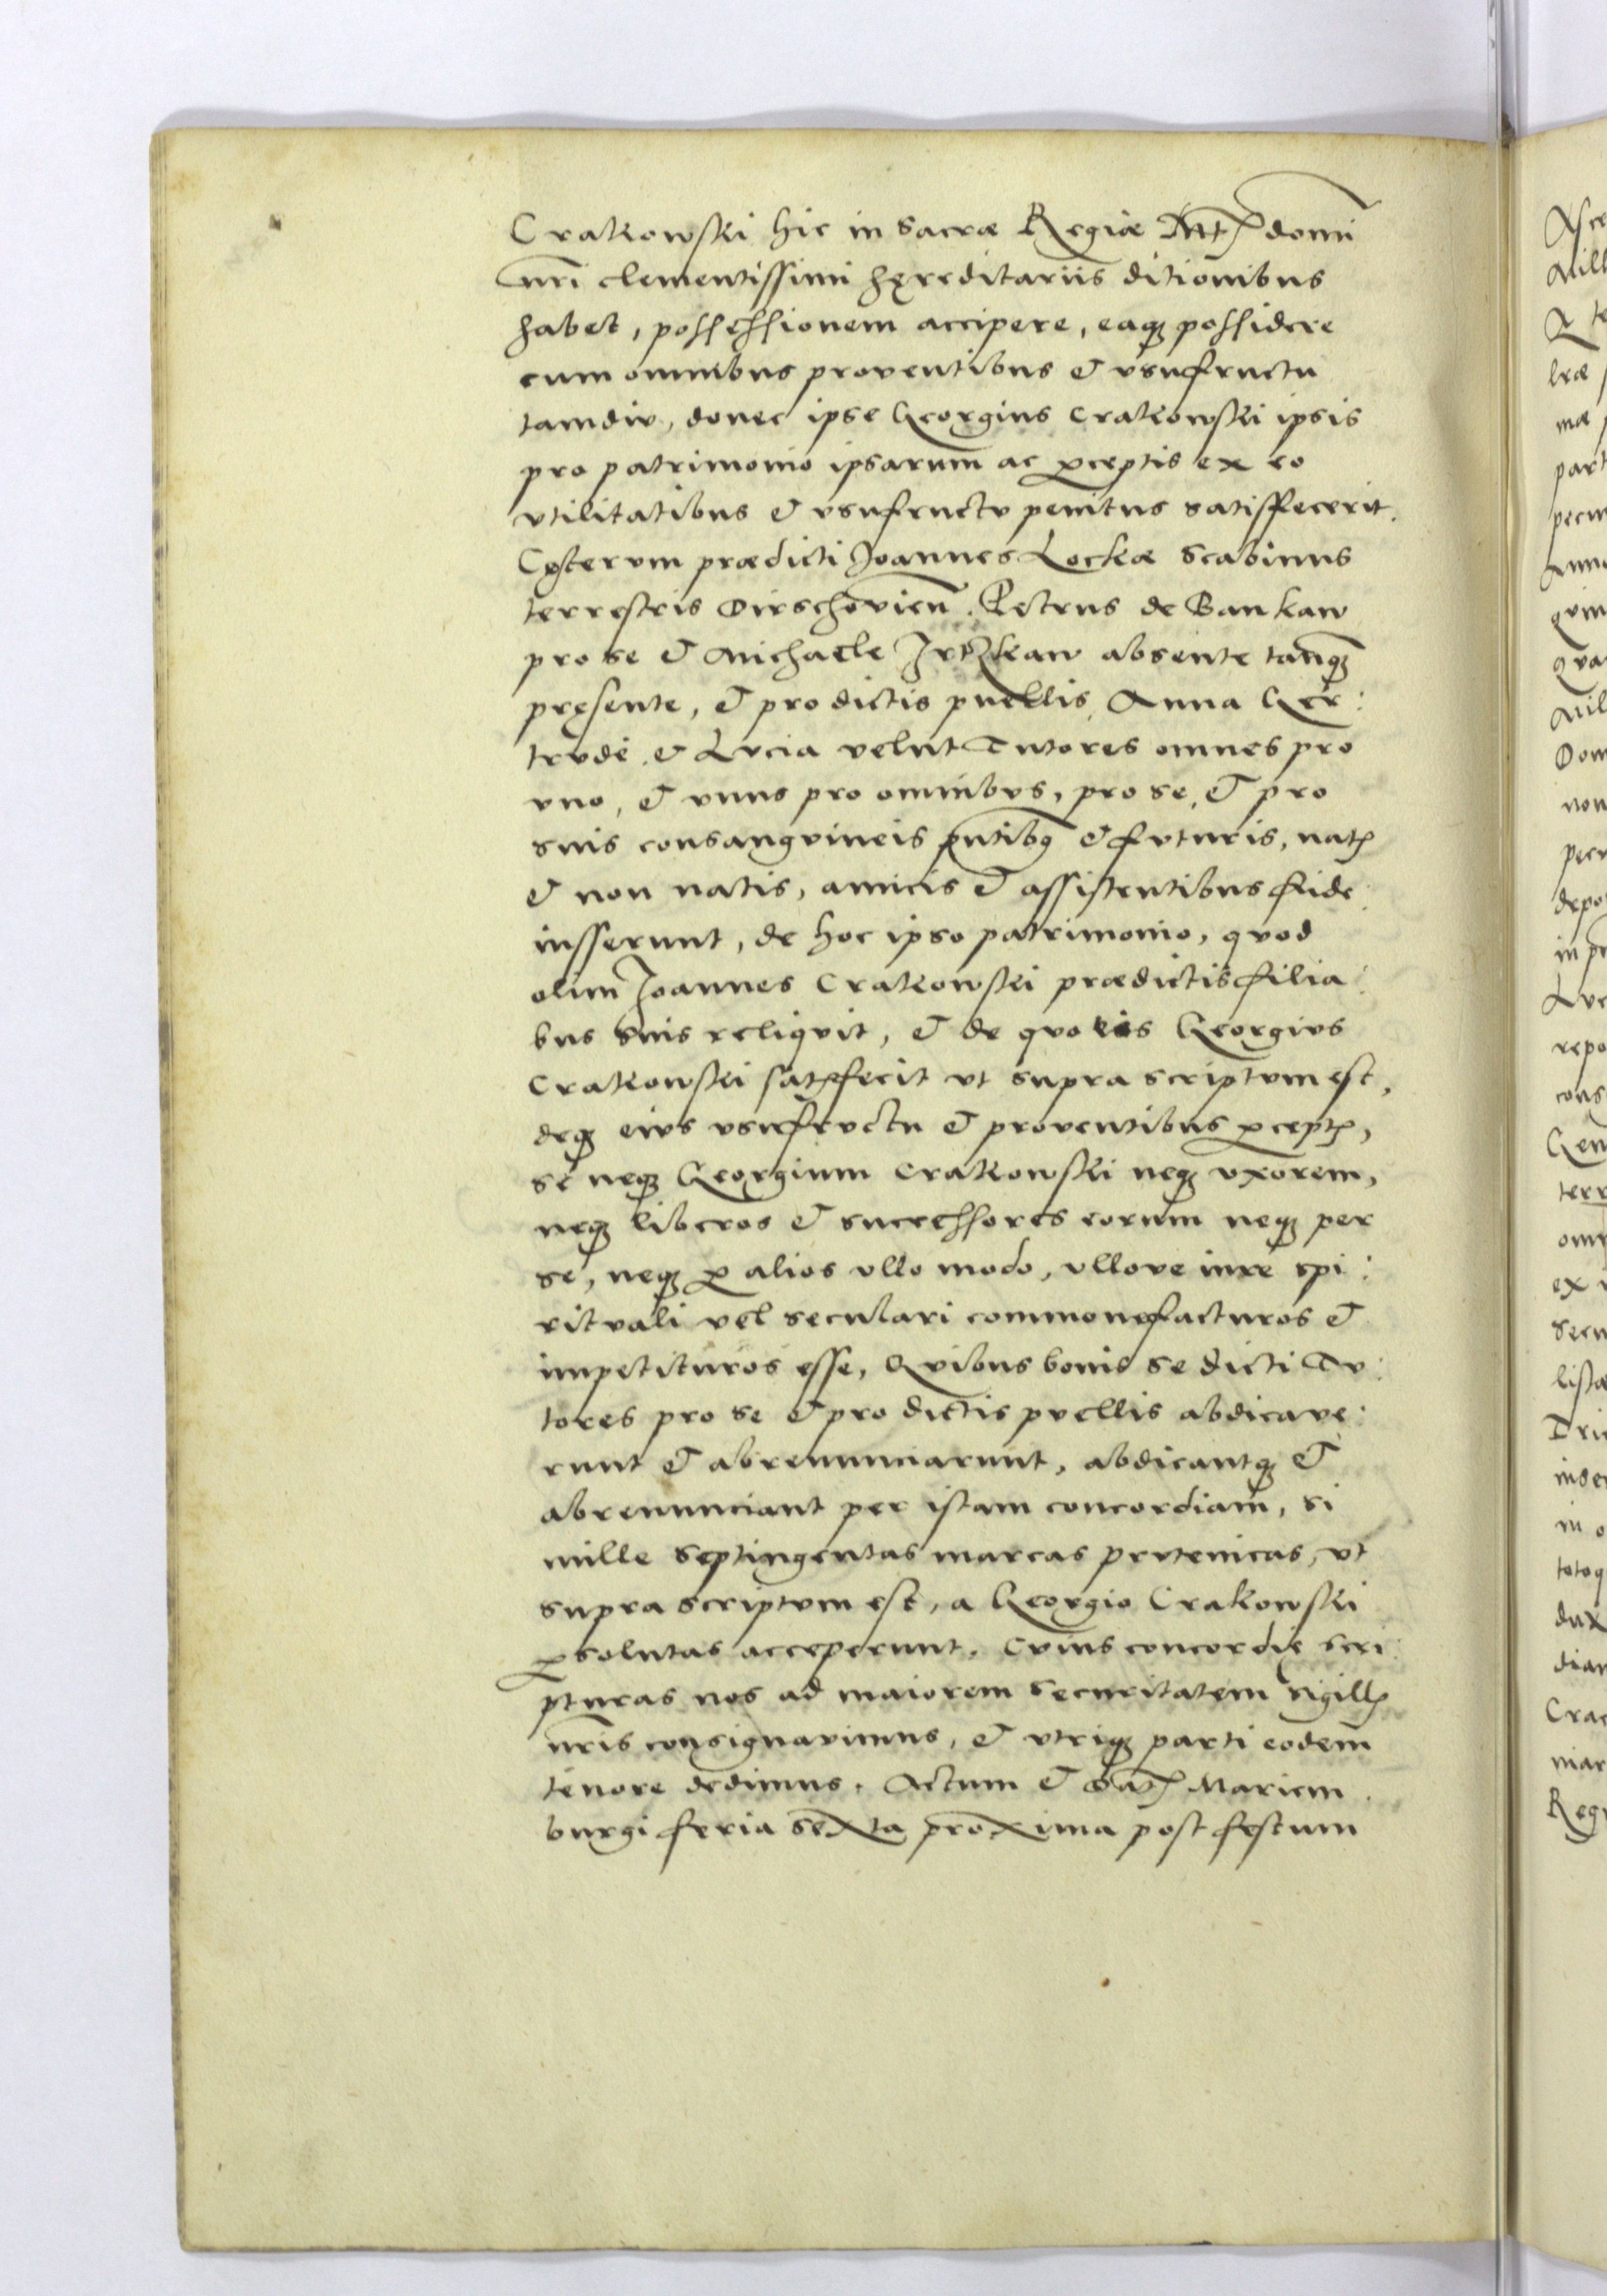 Crakowski hic in Sacræ Regiæ Mtꝭ domi
nri clementissimi hęreditariis ditionibus
habet, possessionem accipere, eaqꝫ possidere
cum omnibus proventibus & vsufructu
tamdiv, donec ipse Georgius Crakowski ipsis
pro patrimonio ipsarum ac ꝑceptis ex eo
vtilitatibus & vsufructv penitus satisfecerit.
Cęterum prædicti Joannes Lockæ Scabinus
terrestris Dirschovien̄. Petrus de Bankaw
pro se & Michaele Jrtzkaw absente tanqꝫ
pręsente, & pro dictis puellis, Anna Ger:
trvde, & Lvcia velut Tutores omnes pro
vno, & vnus pro omnibvs, pro se, & pro
suis consangvineis pntibꝫ & fvturis, natꝭ
& non natis, amicis & assistentibus fide
iusserunt, de hoc ipso patrimonio, qvod
olim Joannes Crakowski prædictis filia:
bus suis reliqvit, & de qvo eis Georgivs
Crakowski satꝭfecit vt supra scriptvm est,
deqꝫ eivs vsufrvctu & proventibus ꝑceptꝭ,
se neqꝫ Georgium Crakowski neqꝫ vxorem,
neqꝫ liberos & successores eorum neqꝫ per
se, neqꝫ ꝑ alios vllo modo, vllove iure spi:
ritvali vel secvlari commonefacturos &
impetituros esse, Qvibus bonis se dicti Tv:
tores pro se & pro dictis pvellis abdicave:
runt & abrenunciarunt, abdicantqꝫ &
abrenunciant per istam concordiam, si
mille septingentas marcas prvtenicas, vt
supra scriptvm est, a Georgio Crakowski
ꝑsolutas acceperunt. Cvius concordię scri:
pturas nos ad maiorem securitatem sigillꝭ
nris consignavimus, & vtriqꝫ parti eodem
tenore dedimus. Actum & datꝭ Mariem
burgi feria sexta proxima post festum